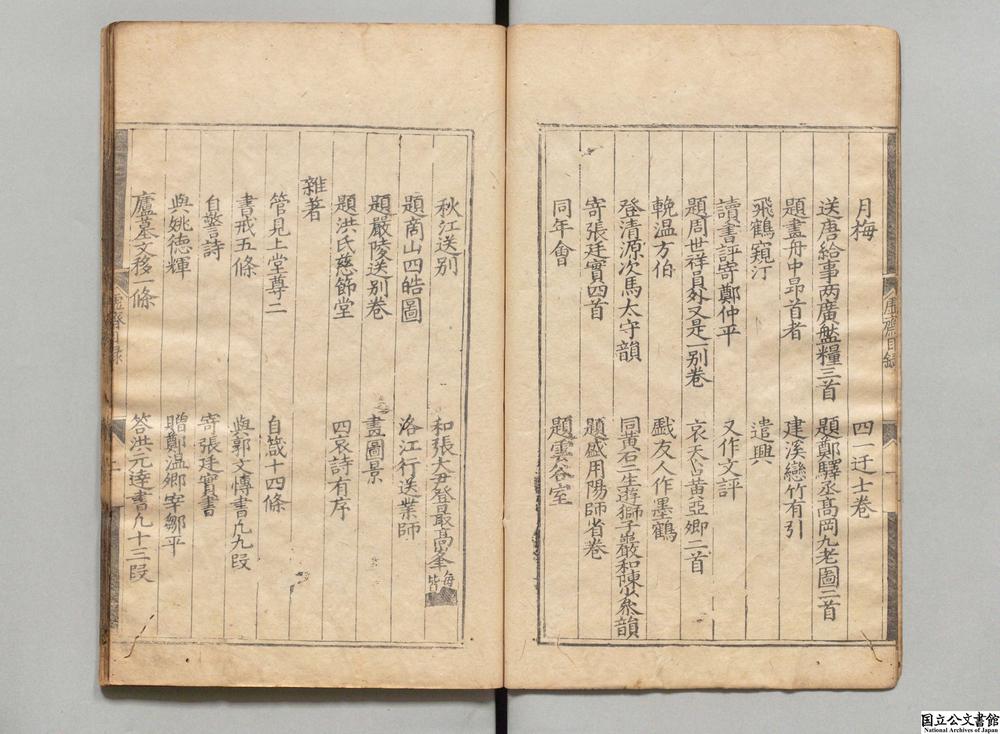 月梅　四一迂士卷
送唐給事两廣盤糧三首　題鄭驛丞髙岡九老圖二首
題畫舟中昻首者　建溪戀竹有引
飛鶴窺汀　遣興
讀書評寄鄭仲平　又作文評
題周世祥員外又是一别卷　哀天占黄亞卿二首
輓温方伯　戱友人作墨鶴
登清源次馬太守韻　同黄石二生遊獅子巖和陳火衆韻
寄張廷實四首　題盛用陽師省卷
同年會　題雲谷室
虚齋目録
秋江送别　和張大尹登最髙峯
題商山四皓圖　洛江行送業師
題嚴陵送别卷　畫圖景
題洪氏慈節堂　四哀詩有序
雜著
管見上堂尊二　自箴十四條
書戒五條　與郭文博書凢九段
自警詩　寄張廷實書
與姚德輝　贈鄭温卿宰鄒平
廬墓文移一條　答洪元逹書凢十三段
國立公文書館
National Archives of Japan